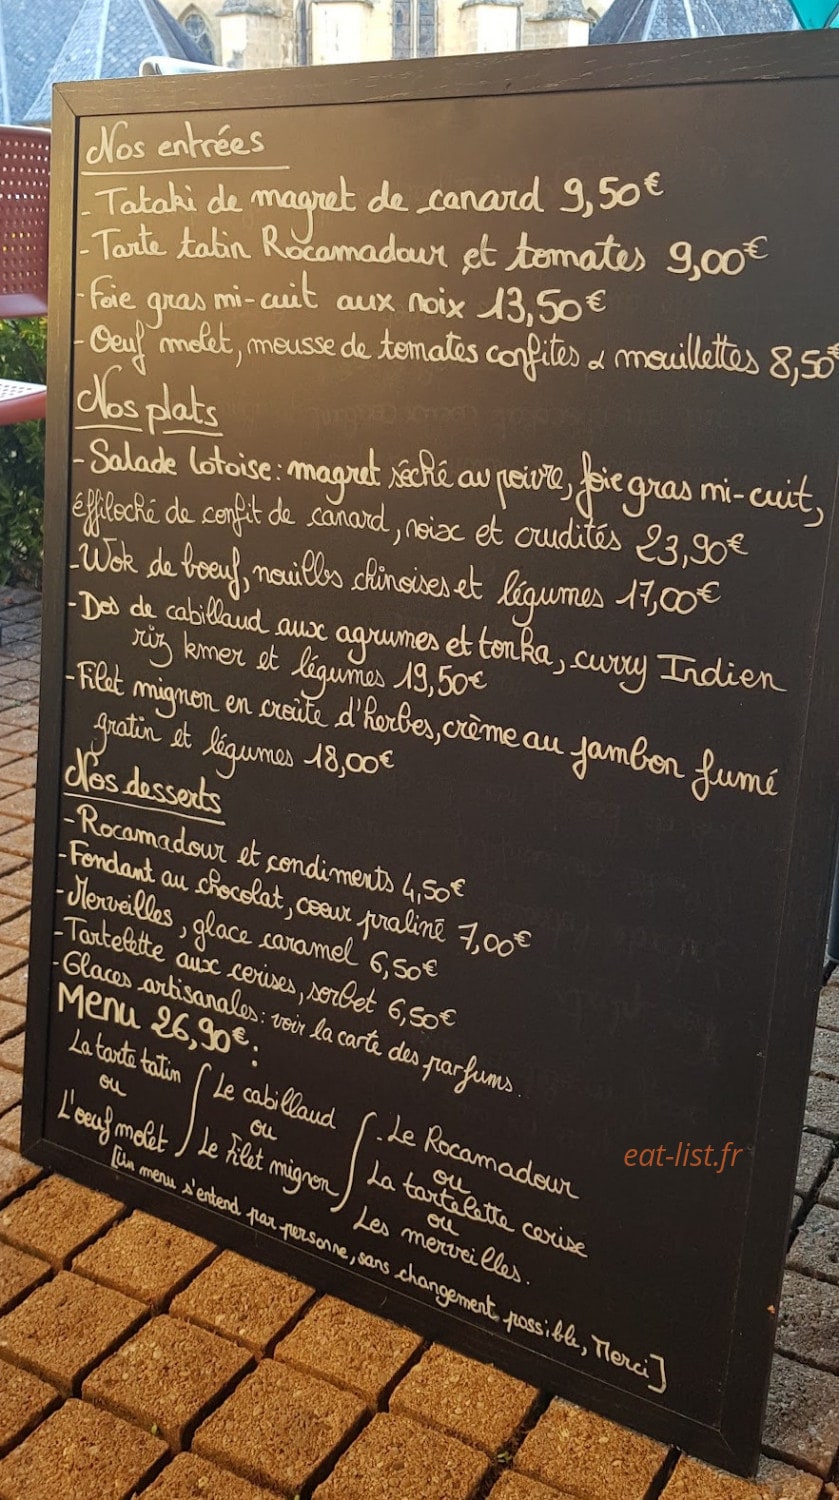 Nos entrées
- Tataki de magret de canard 9,50€
- Tarte tatin Rocamadour et tomates 9,00€
- Foie gras mi-cuit aux noix 13,50€
- Oeuf molet, mousse de tomates confites & mouillettes 8,50€
Nos plats
- Salade lotoise : magret séché au poivre, foie gras mi-cuit,
éffiloché de confit de canard, noix et crudités 23,90€
- Wok de boeuf, nouilles chinoises et légumes 17,00€
- Dos de cabillaud aux agrumes et tonka, curry Indien
riz kmer et légumes 19,50€
- Filet mignon en croûte d'herbes, crème au jambon fumé
gratin et légumes 18,00€
Nos desserts
- Rocamadour et condiments 4,50€
- Fondant au chocolat, coeur praliné 7,00€
- Merveilles, glace caramel 6,50€
- Tartelette aux cerises, sorbet 6,50€
- Glaces artisanales : voir la carte des parfums.
Menu 26,90€ :
La tarte tatin
ou
L'oeuf molet
Le cabillaud
ou
Le Filet mignon
- Le Rocamadour
ou
La tartelette cerise
ou
Les merveilles.
[Un menu s'entend par personne, sans changement possible, Merci]
eat-list.fr